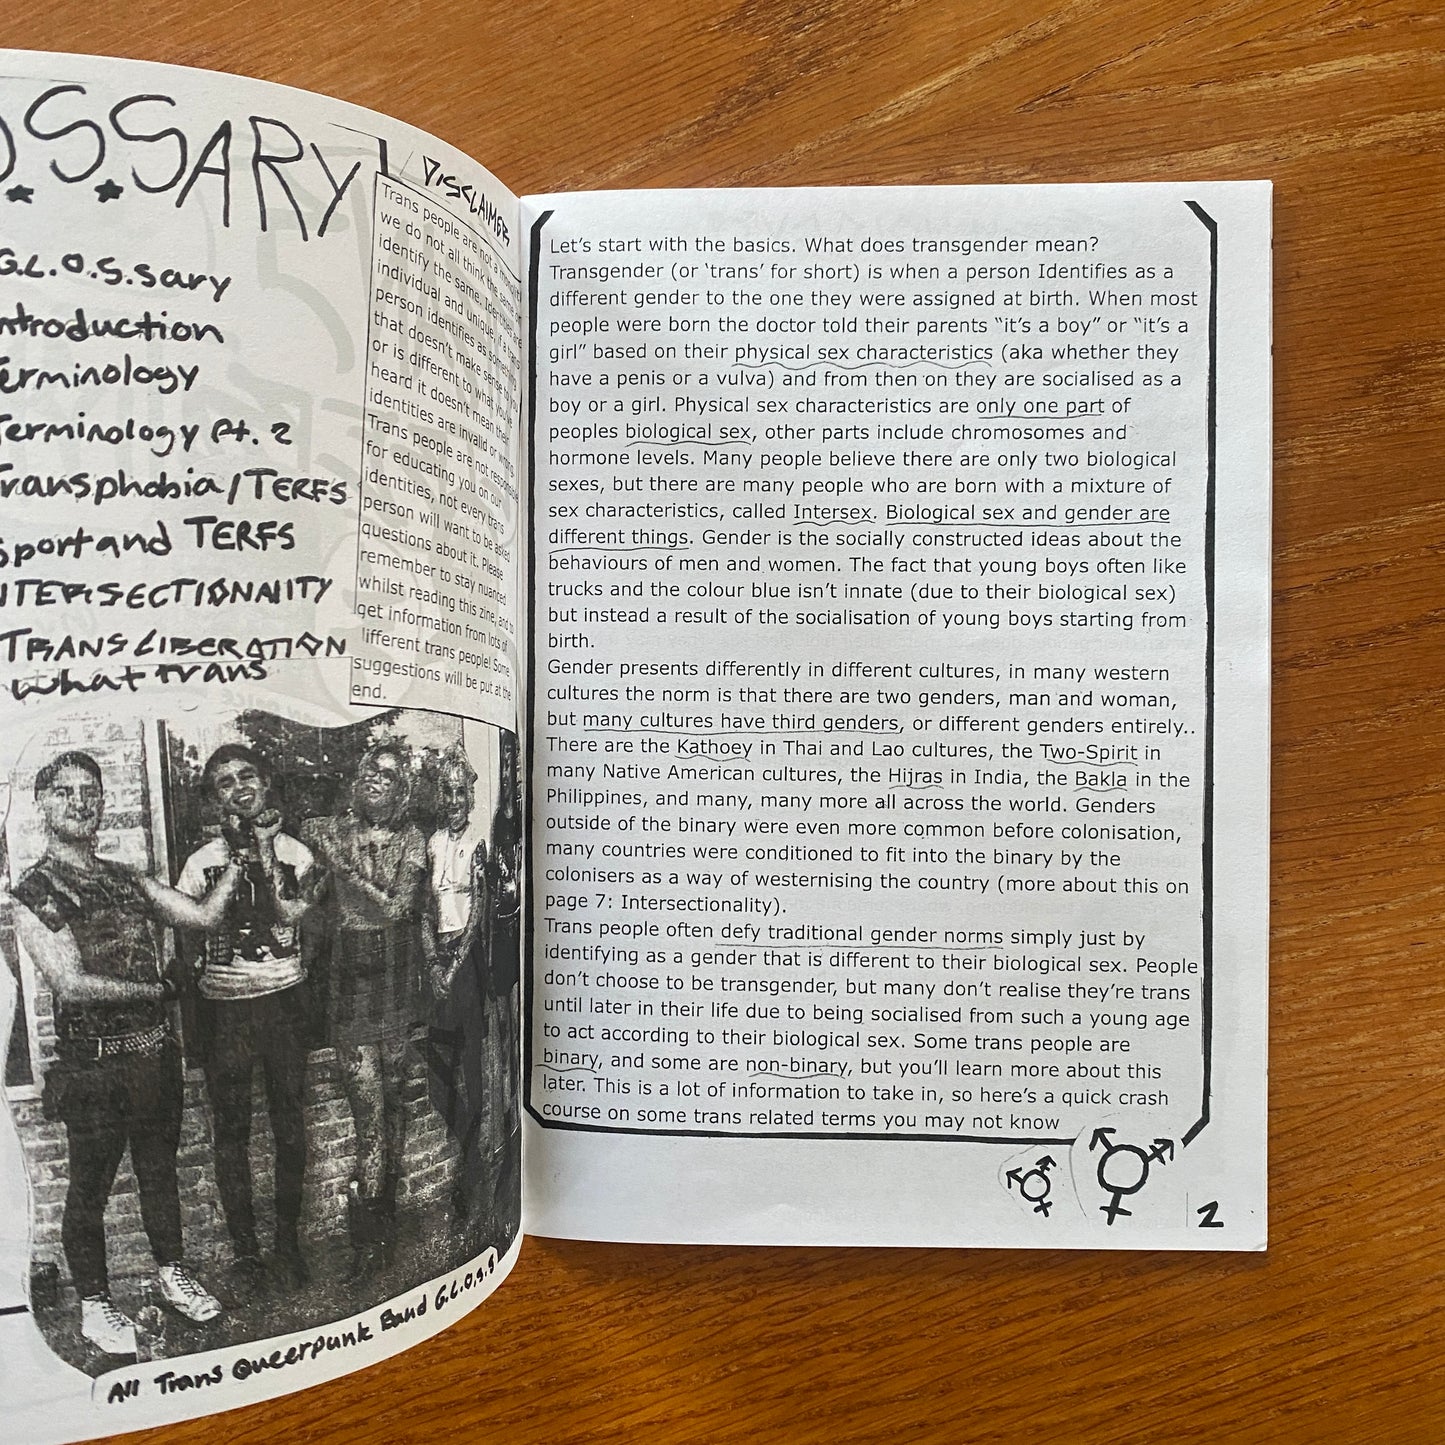 .S.SARY
G.L.O.S.sary
ntroduction
erminology
Terminology Pt. 2
Transphobia/TERFS
Sport and TERFS
NTERSECTIONALITY
TRANS LIBERATION
what trans
DISCLAIMER
Trans people are not a
we do not all think the same or
identify the same. Identities are
individual and unique, if a trans
person identifies as something
that doesn't make sense to you
or is different to what you've
heard it doesn't mean their
identities are invalid or wrong.
Trans people are not responsible
for educating you on our
identities, not every trans
person will want to be asked
questions about it. Please
remember to stay nuanced
whilst reading this zine, and to
get information from lots of
different trans people! Some
suggestions will be put at the
end.
All Trans Queerpunk Band G.L.O.S.S
Let's start with the basics. What does transgender mean?
Transgender (or 'trans' for short) is when a person Identifies as a
different gender to the one they were assigned at birth. When most
people were born the doctor told their parents "it's a boy" or "it's a
girl" based on their physical sex characteristics (aka whether they
have a penis or a vulva) and from then on they are socialised as a
boy or a girl. Physical sex characteristics are only one part of
peoples biological sex, other parts include chromosomes and
hormone levels. Many people believe there are only two biological
sexes, but there are many people who are born with a mixture of
sex characteristics, called Intersex. Biological sex and gender are
different things. Gender is the socially constructed ideas about the
behaviours of men and women. The fact that young boys often like
trucks and the colour blue isn't innate (due to their biological sex)
but instead a result of the socialisation of young boys starting from
birth.
Gender presents differently in different cultures, in many western
cultures the norm is that there are two genders, man and woman,
but many cultures have third genders, or different genders entirely..
There are the Kathoey in Thai and Lao cultures, the Two-Spirit in
many Native American cultures, the Hijras in India, the Bakla in the
Philippines, and many, many more all across the world. Genders
outside of the binary were even more common before colonisation,
many countries were conditioned to fit into the binary by the
colonisers as a way of westernising the country (more about this on
page 7: Intersectionality).
Trans people often defy traditional gender norms simply just by
identifying as a gender that is different to their biological sex. People
don't choose to be transgender, but many don't realise they're trans
until later in their life due to being socialised from such a young age
to act according to their biological sex. Some trans people are
binary, and some are non-binary, but you'll learn more about this
later. This is a lot of information to take in, so here's a quick crash
course on some trans related terms you may not know
2